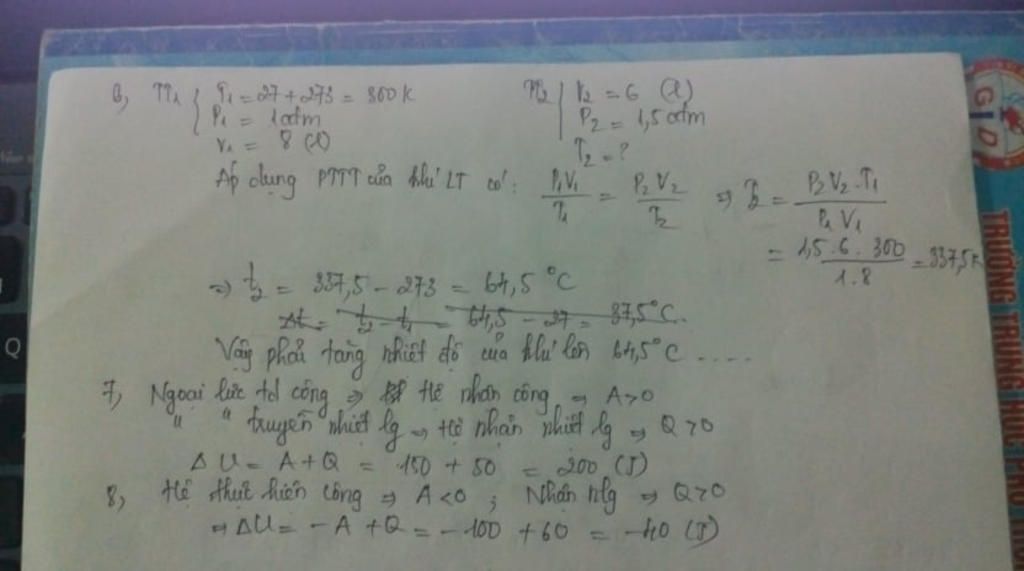 6, TT1 { T1 = 27 + 273 = 300 K
P1 = 1 atm
V1 = 8 (l)
TT2 | V2 = 6 (l)
P2 = 1,5 atm
T2 = ?
Áp dụng PTTT của khí LT có: P1V1/T1 = P2V2/T2 => T2 = P2V2.T1/P1V1
= 1,5.6.300/1.8 = 337,5K
=> t2 = 337,5 - 273 = 64,5 °C
Δt = t2 - t1 = 64,5 - 27 = 37,5°C
Vậy phải tăng nhiệt độ của khí lên 64,5°C ....
7, Ngoại lực td công => Hệ nhận công => A>0
" " truyền nhiệt lg => Hệ nhận nhiệt lg => Q>0
ΔU = A+Q = 150 + 50 = 200 (J)
8, Hệ thực hiện công => A<0 ; Nhận nlg => Q>0
=> ΔU = -A + Q = -100 + 60 = -40 (J)
Q
GID
TRƯỜNG TRUNG HỌC PHỔ THÔNG